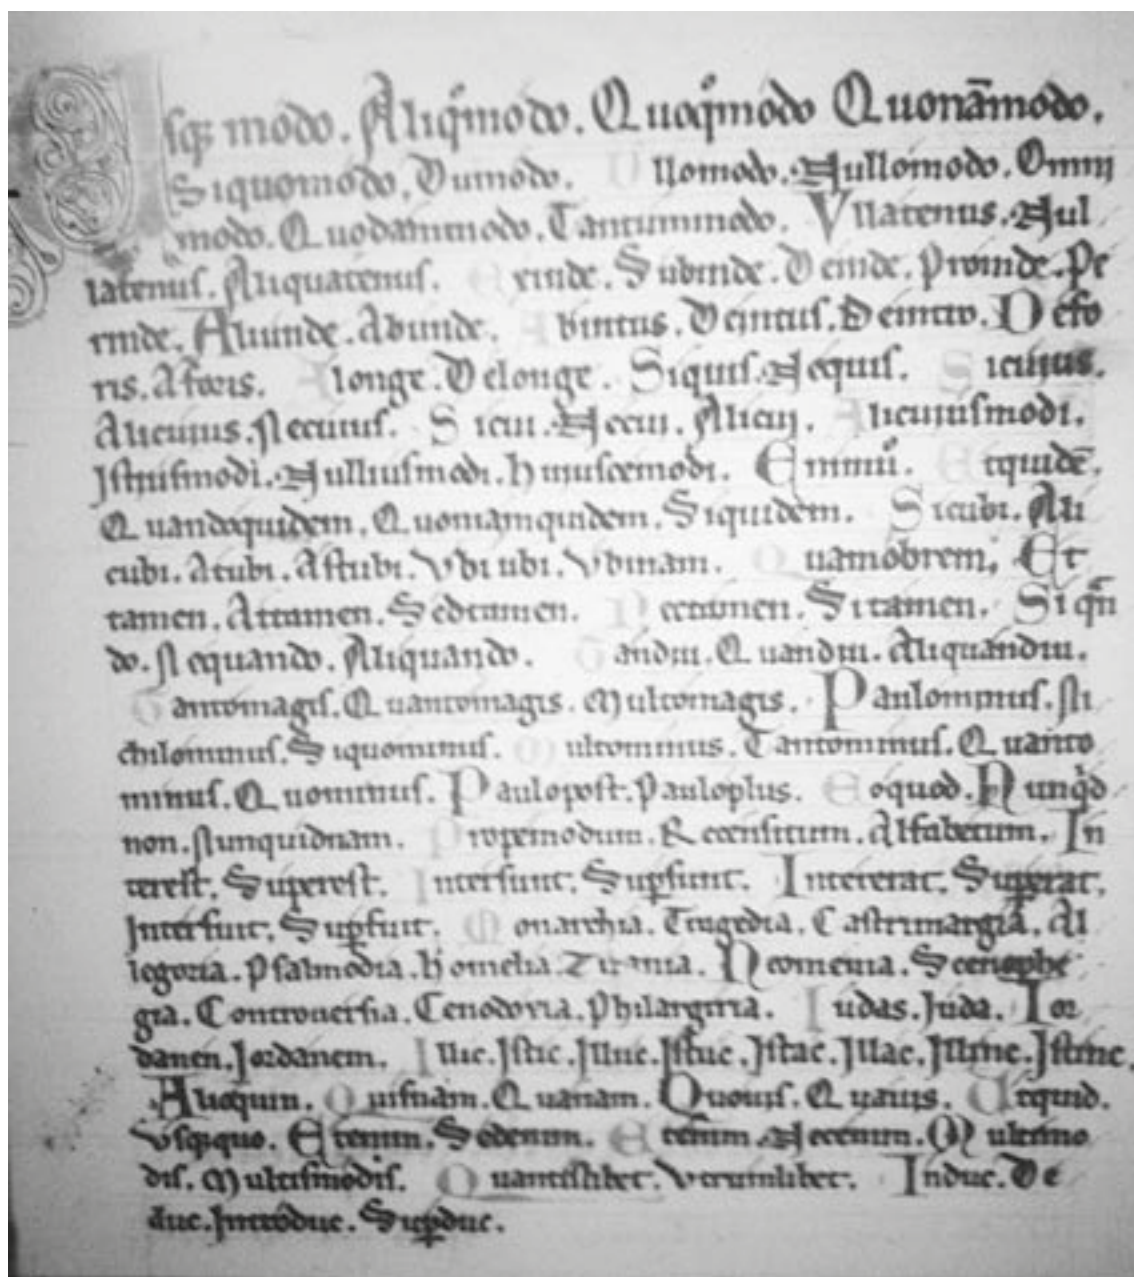 usq; modo. Aliqͦmodo. Quoqͦmodo Quonāmodo.
Siquomodo. Dumodo. Ullomodo. Nullomodo. Omni
modo. Quodammodo. Tantummodo. Vllatenus. Nul
latenus. Aliquatenus. Exinde. Subinde. Deinde. Proinde. Pe
rinde. Aliunde. Abunde. Abintus. Deintus. Deintro. Defo
ris. Aforis. Alonge. Delonge. Siquis. Nequis. Sicuius.
Alicuius. Necuius. Sicui. Necui. Alicui. Alicuiusmodi.
Istiusmodi. Nulliusmodi. huiuscemodi. Etquidē.
Quandoquidem. Quoniamquidem. Siquidem. Sicubi. Ali
cubi. Vbi ubi. Vbinam. Quamobrem. Et
tamen. Attamen. Sedtamen. Nectamen. Sitamen. Siqn̄
do. Nequando. Aliquando. Tandiu. Quandiu. Aliquandiu.
Tantomagis. Quantomagis. Multomagis. Paulominus. Ni
chilominus. Siquominus. Multominus. Tantominus. Quanto
minus. Quominus. Paulopost. Pauloplus. Eoquod. Nunqͥd
non. Nunquidnam. Propemodum. Recensitum. Alfabetum. In
terest. Superest. Intersunt. Suꝑsunt. Intererat. Suꝑerat.
Interfuit. Suꝑfuit. Monarchia. Tragedia. Castrimargia. Al
legoria. Psalmodia. homelia. Tirania. Neomenia. Scenophe
gia. Controuersia. Cenodoxia. Philargiria. Iudas. Iuda. Ior
danen. Iordanem. Illic. Istic. Illuc. Istuc. Istac. Illac. Illinc. Istinc.
Alioquin. Quisnam. Quanam. Quouis. Quauis. Ecquid.
Vsq;quo. Etenim. Sedenim. Necenim. Multimo
dis. Multismodis. Quantislibet. Vtrumlibet. Induc. De
duc. Introduc. Suꝑduc.